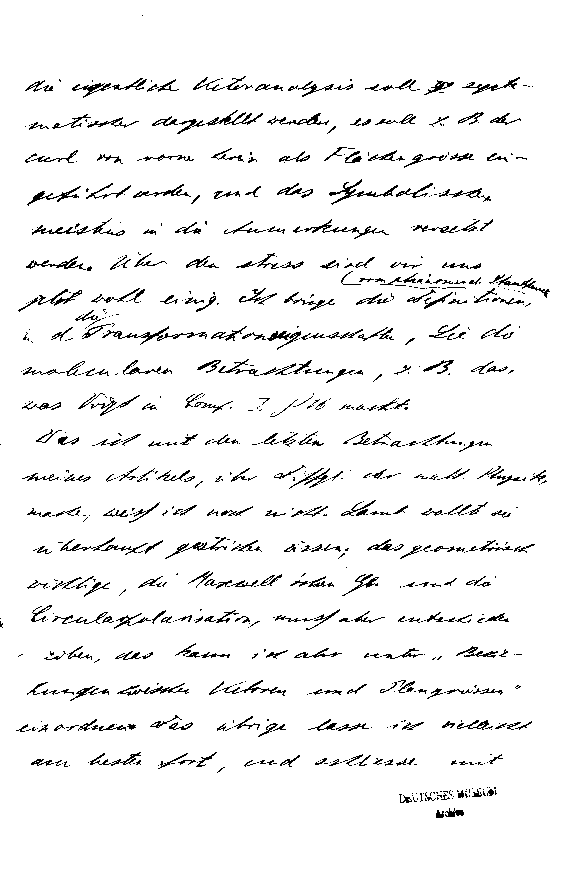 die eigentliche Vectoranalysis soll syste-
matischer dargestellt werden, es soll z. B. der
curl von vorne herein als Flächengrösse ein-
geführt werden, und das Symbolische
meistens in die Anmerkungen versetzt
werden. Über den stress sind wir uns
jetzt voll einig. Ich bringe die Definitionen,
die Transformationseigenschaften, Sie die
molecularen Betrachtungen, z. B. das,
was Voigt in Comp. I macht.
Was ich mit den letzten Betrachtungen
meines Artikels, über Diffgl. der math. Physik,
mache, weiss ich noch nicht. Lamb wollte sie
überhaupt gestrichen wissen; das geometrisch
wichtige, die Maxwell'schen Gl. und die
Circularpolarisation, muss aber entschieden
bleiben, das kann ich aber unter "Bezie-
hungen zwischen Vektoren und Plangrössen"
einordnen. Das übrige lasse ich vielleicht
am besten fort, und schliesse mit
DEUTSCHES MUSEUM
Archiv